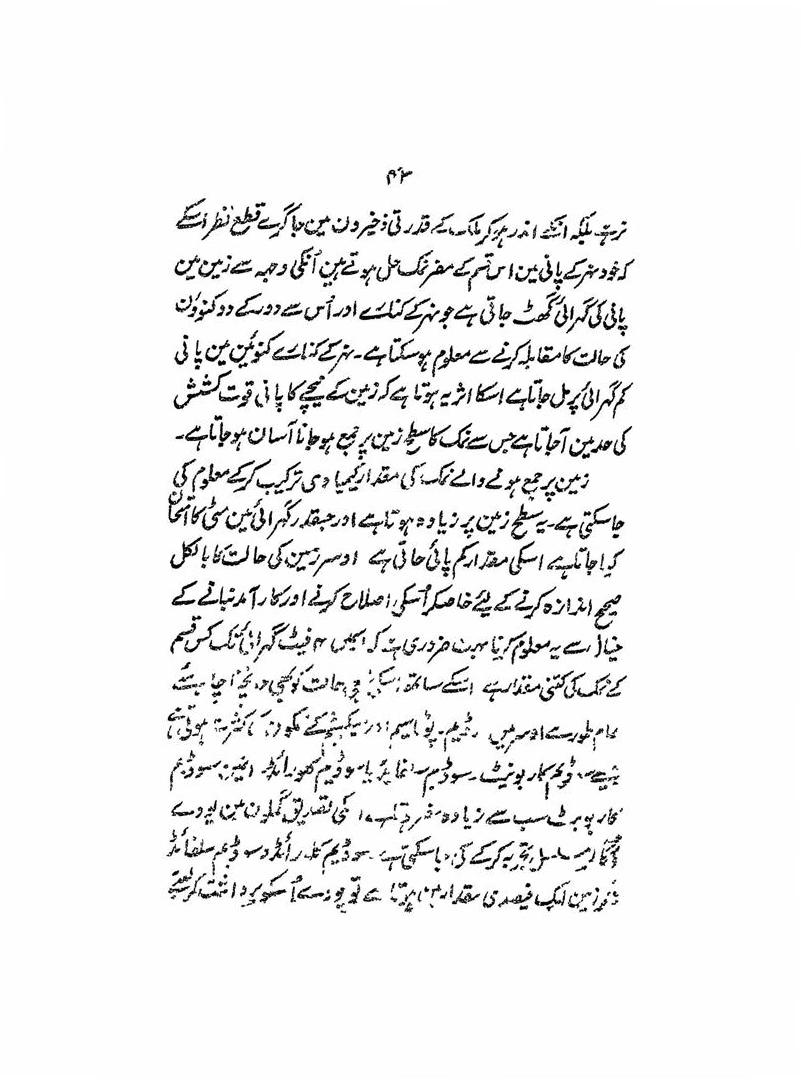 ۴۳
نہ رہے بلکہ انکے اندر ہو کر ملک کے قدرتی ذخیرون مین جا گرے قطع نظر اسکے
کہ خود نہر کے پانی مین اس قسم کے مضر نمک حل ہوتے ہین اُنکی وجہ سے زمین مین
پانی کی گہرائی گھٹ جاتی ہے جو نہر کے کنارے اور اُس سے دور کے دو کنوؤن
کی حالت کا مقابلہ کرنے سے معلوم ہو سکتا ہے۔ نہر کے کنارے کنوئین مین پانی
کم گہرائی پر مل جاتا ہے اسکا اثر یہ ہوتا ہے کہ زمین کے نیچے کا پانی قوت کشش
کی حد مین آجاتا ہے جس سے نمک کا سطح زمین پر جمع ہو جانا آسان ہو جاتا ہے۔
زمین پر جمع ہونے والے نمک کی مقدار کیمیاوی ترکیب کرکے معلوم کی
جا سکتی ہے۔ یہ سطح زمین پر زیادہ ہوتا ہے اور جسقدر گہرائی مین مٹی کا امتحان
کیا جاتا ہے اسکی مقدار کم پائی جاتی ہے اوسر زمین کی حالت کا بالکل
صحیح اندازہ کرنے کے لیئے خاصکر اُسکی اصلاح کرنے اور کار آمد بنانے کے
خیال سے یہ معلوم کرنا بہت ضروری ہے کہ اسمیں ۴ فیٹ گہرائی تک کس قسم
کے نمک کی کتنی مقدار ہے اسکے ساتھ اسکی حالت کو بھی دیکھنا چاہیئے
عام طور سے اوسر میں سوڈیم۔ پوٹاسیم اور میگنیشیم کے نمکون کی کثرت ہوتی ہے
جیسے سوڈیم کاربونیٹ۔ سوڈیم سلفائڈ یا سوڈیم کلورائڈ انمین سوڈیم
کاربونیٹ سب سے زیادہ مضر ہوتا ہے اسکی تصدیق گملون مین پودے
لگا کر مسلسل تجربہ کرکے کی جا سکتی ہے۔ سوڈیم کلورائڈ و سوڈیم سلفائڈ
اگر زمین ایک فیصدی مقدار مین ہوتا ہے تو پودے اُسکو برداشت کر لیتے